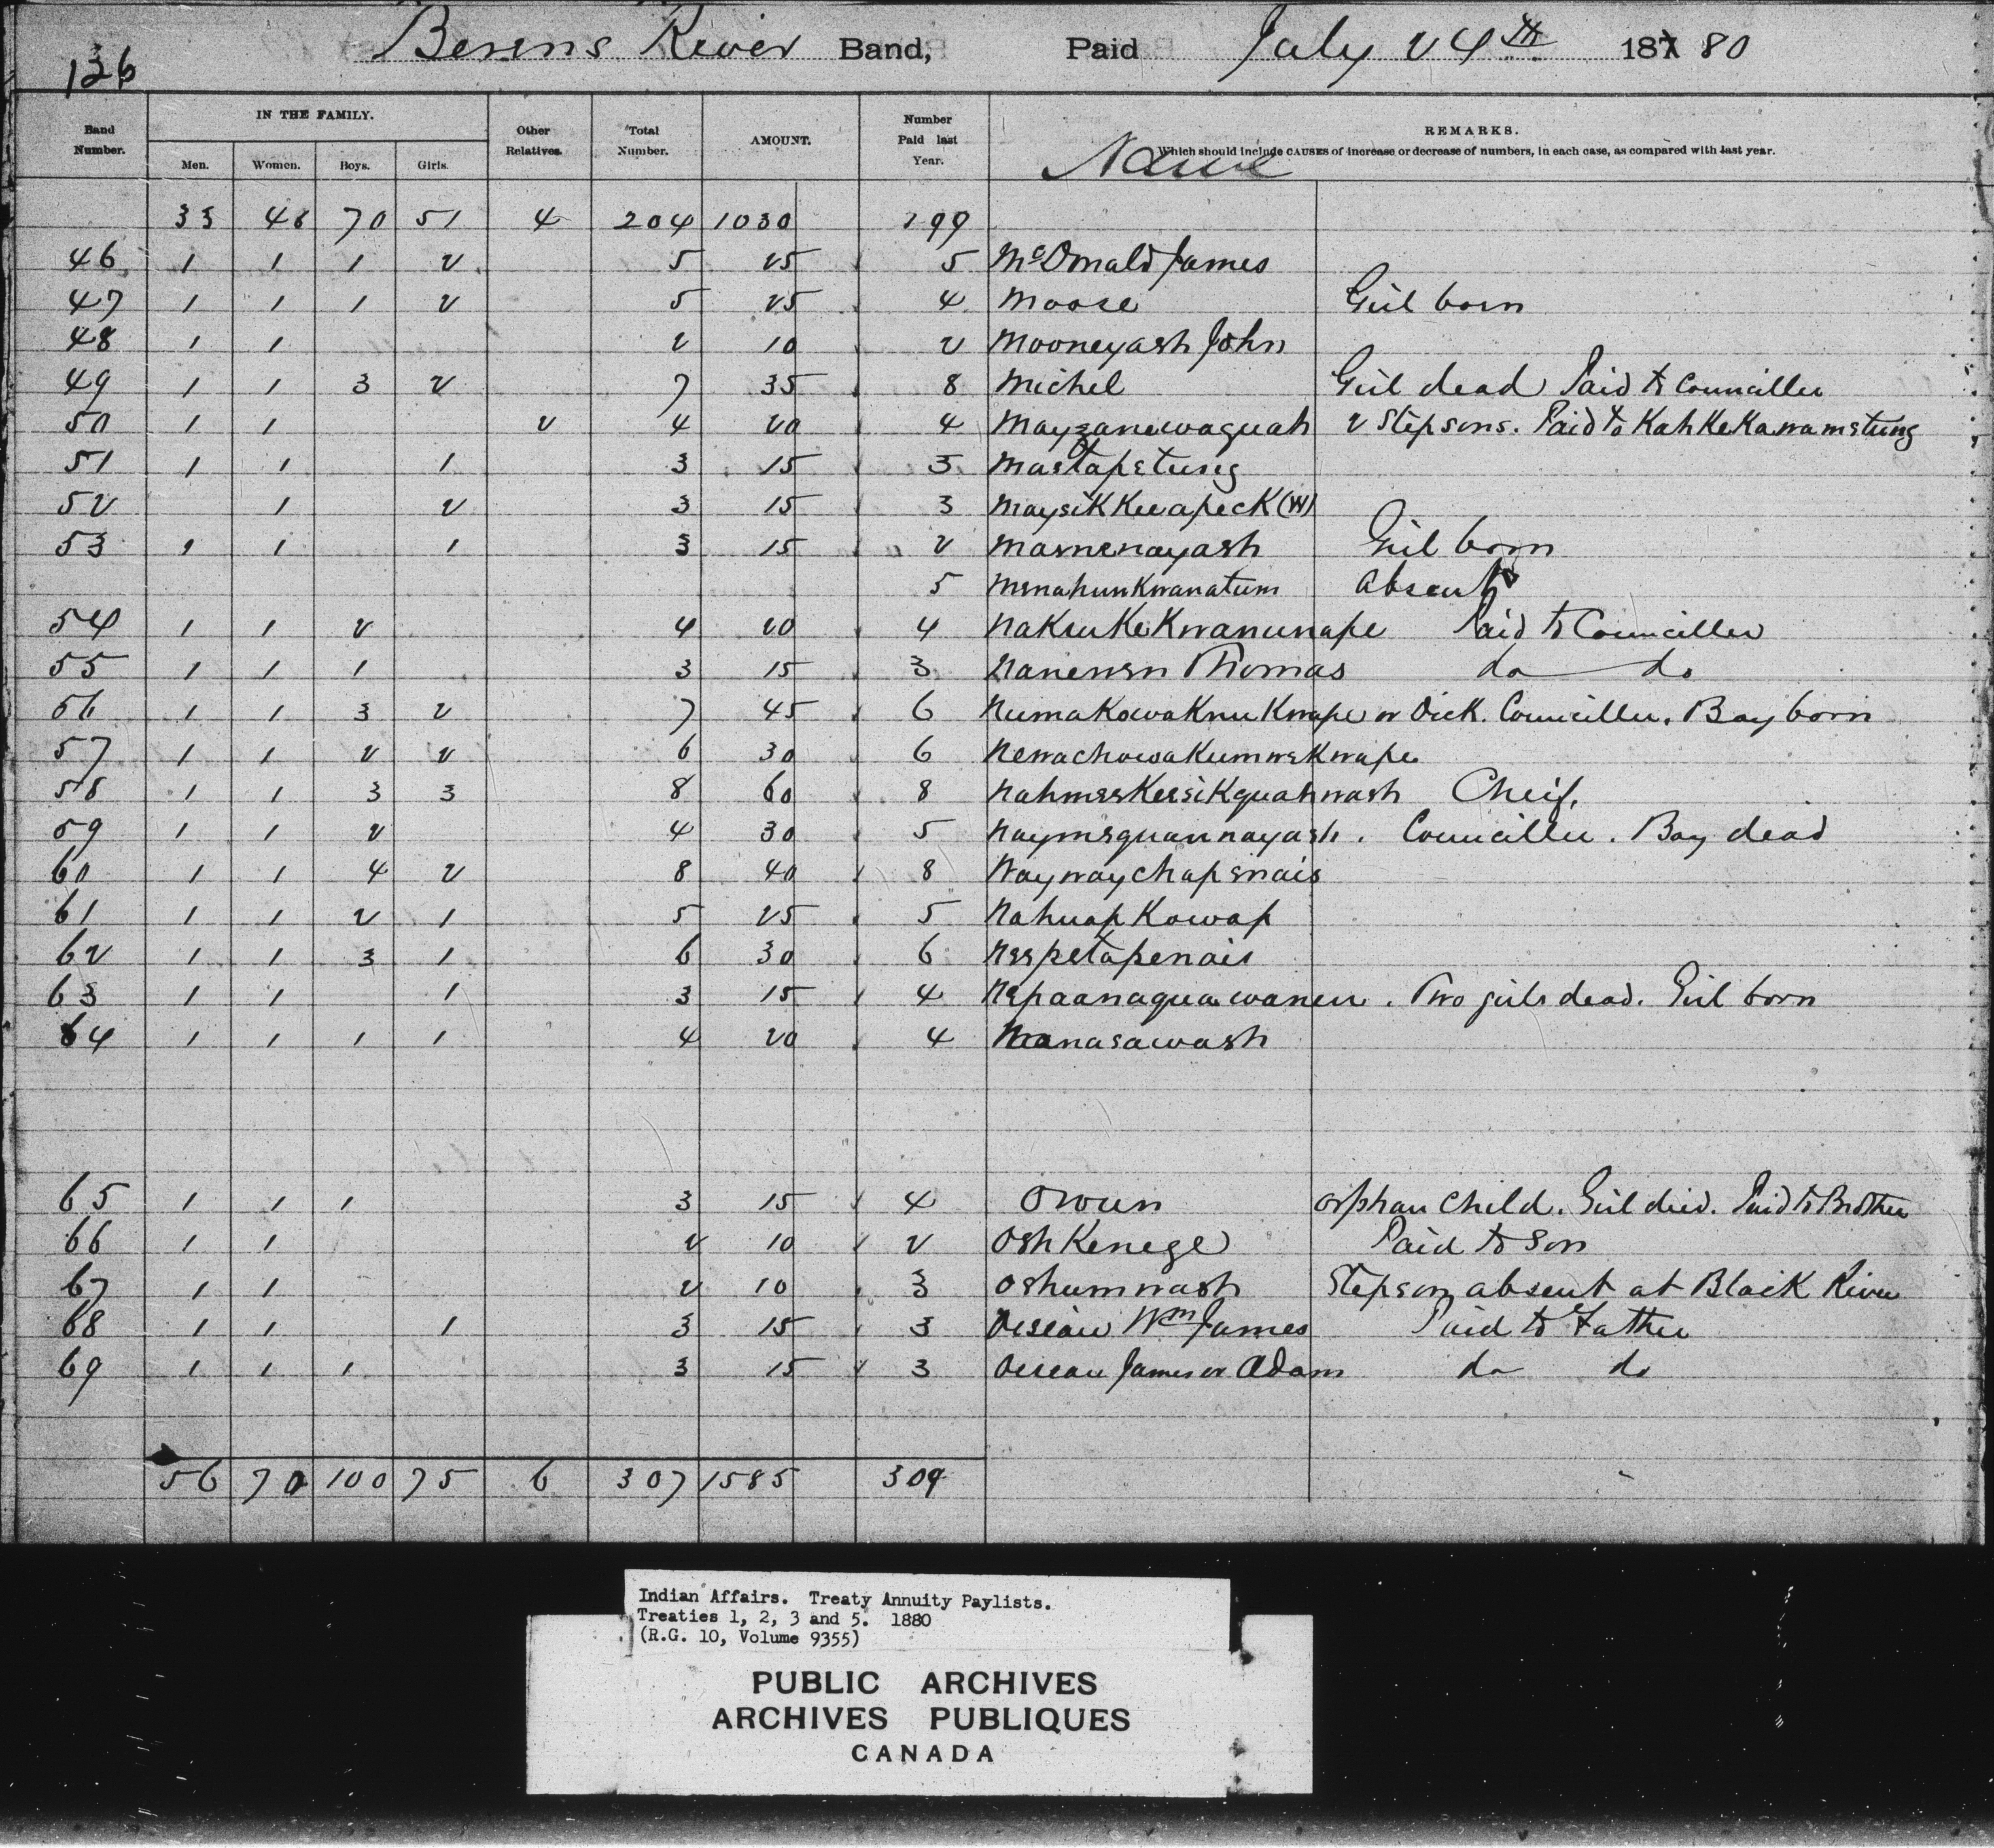 136
Berens River Band, Paid July 24th 187 80
Band Number. IN THE FAMILY. Men. Women. Boys. Girls. Other Relatives. Total Number. AMOUNT. Number Paid last Year. Name REMARKS.
Which should include CAUSES of increase or decrease of numbers, in each case, as compared with last year.
33 48 70 51 4 204 1030 199
46 1 1 1 2 5 25 5 McDonald James
47 1 1 1 2 5 25 4 Moose Girl born
48 1 1 2 10 2 Mooneyash John
49 1 1 3 2 7 35 8 Michel Girl dead Paid to Counciller
50 1 1 2 4 20 4 Mayzanewaguah 2 Stepsons. Paid to
51 1 1 1 3 15 3 Mastapetung
52 1 2 3 15 3 (W)
53 1 1 1 3 15 2 Masnenayash Girl born
5 Menahunkwanatum Absent
54 1 1 2 4 20 4 Paid to Counciller
55 1 1 1 3 15 3 Thomas do do
56 1 1 3 2 7 45 6 or Dick. Counciller. Boy born
57 1 1 2 2 6 30 6
58 1 1 3 3 8 60 8 Cheif.
59 1 1 2 4 30 5 Naymequannayash. Counciller. Boy dead
60 1 1 4 2 8 40 8 Naywaychapenais
61 1 1 2 1 5 25 5 Nahuapkowap
62 1 1 3 1 6 30 6 Neepetapenais
63 1 1 1 3 15 4 . Two girls dead. Girl born
64 1 1 1 1 4 20 4 Nanasawash
65 1 1 1 3 15 4 Owen Orphan child. Girl died. Paid to Brother
66 1 1 2 10 2 Oshkenege Paid to Son
67 1 1 2 10 3 Oshumwash Stepson absent at Black River
68 1 1 1 3 15 3 Oiseau Wm James Paid to Father
69 1 1 1 3 15 3 Oiseau James or Adam do do
56 70 100 75 6 307 1585 309
Indian Affairs. Treaty Annuity Paylists.
Treaties 1, 2, 3 and 5. 1880
(R.G. 10, Volume 9355)
PUBLIC ARCHIVES
ARCHIVES PUBLIQUES
CANADA